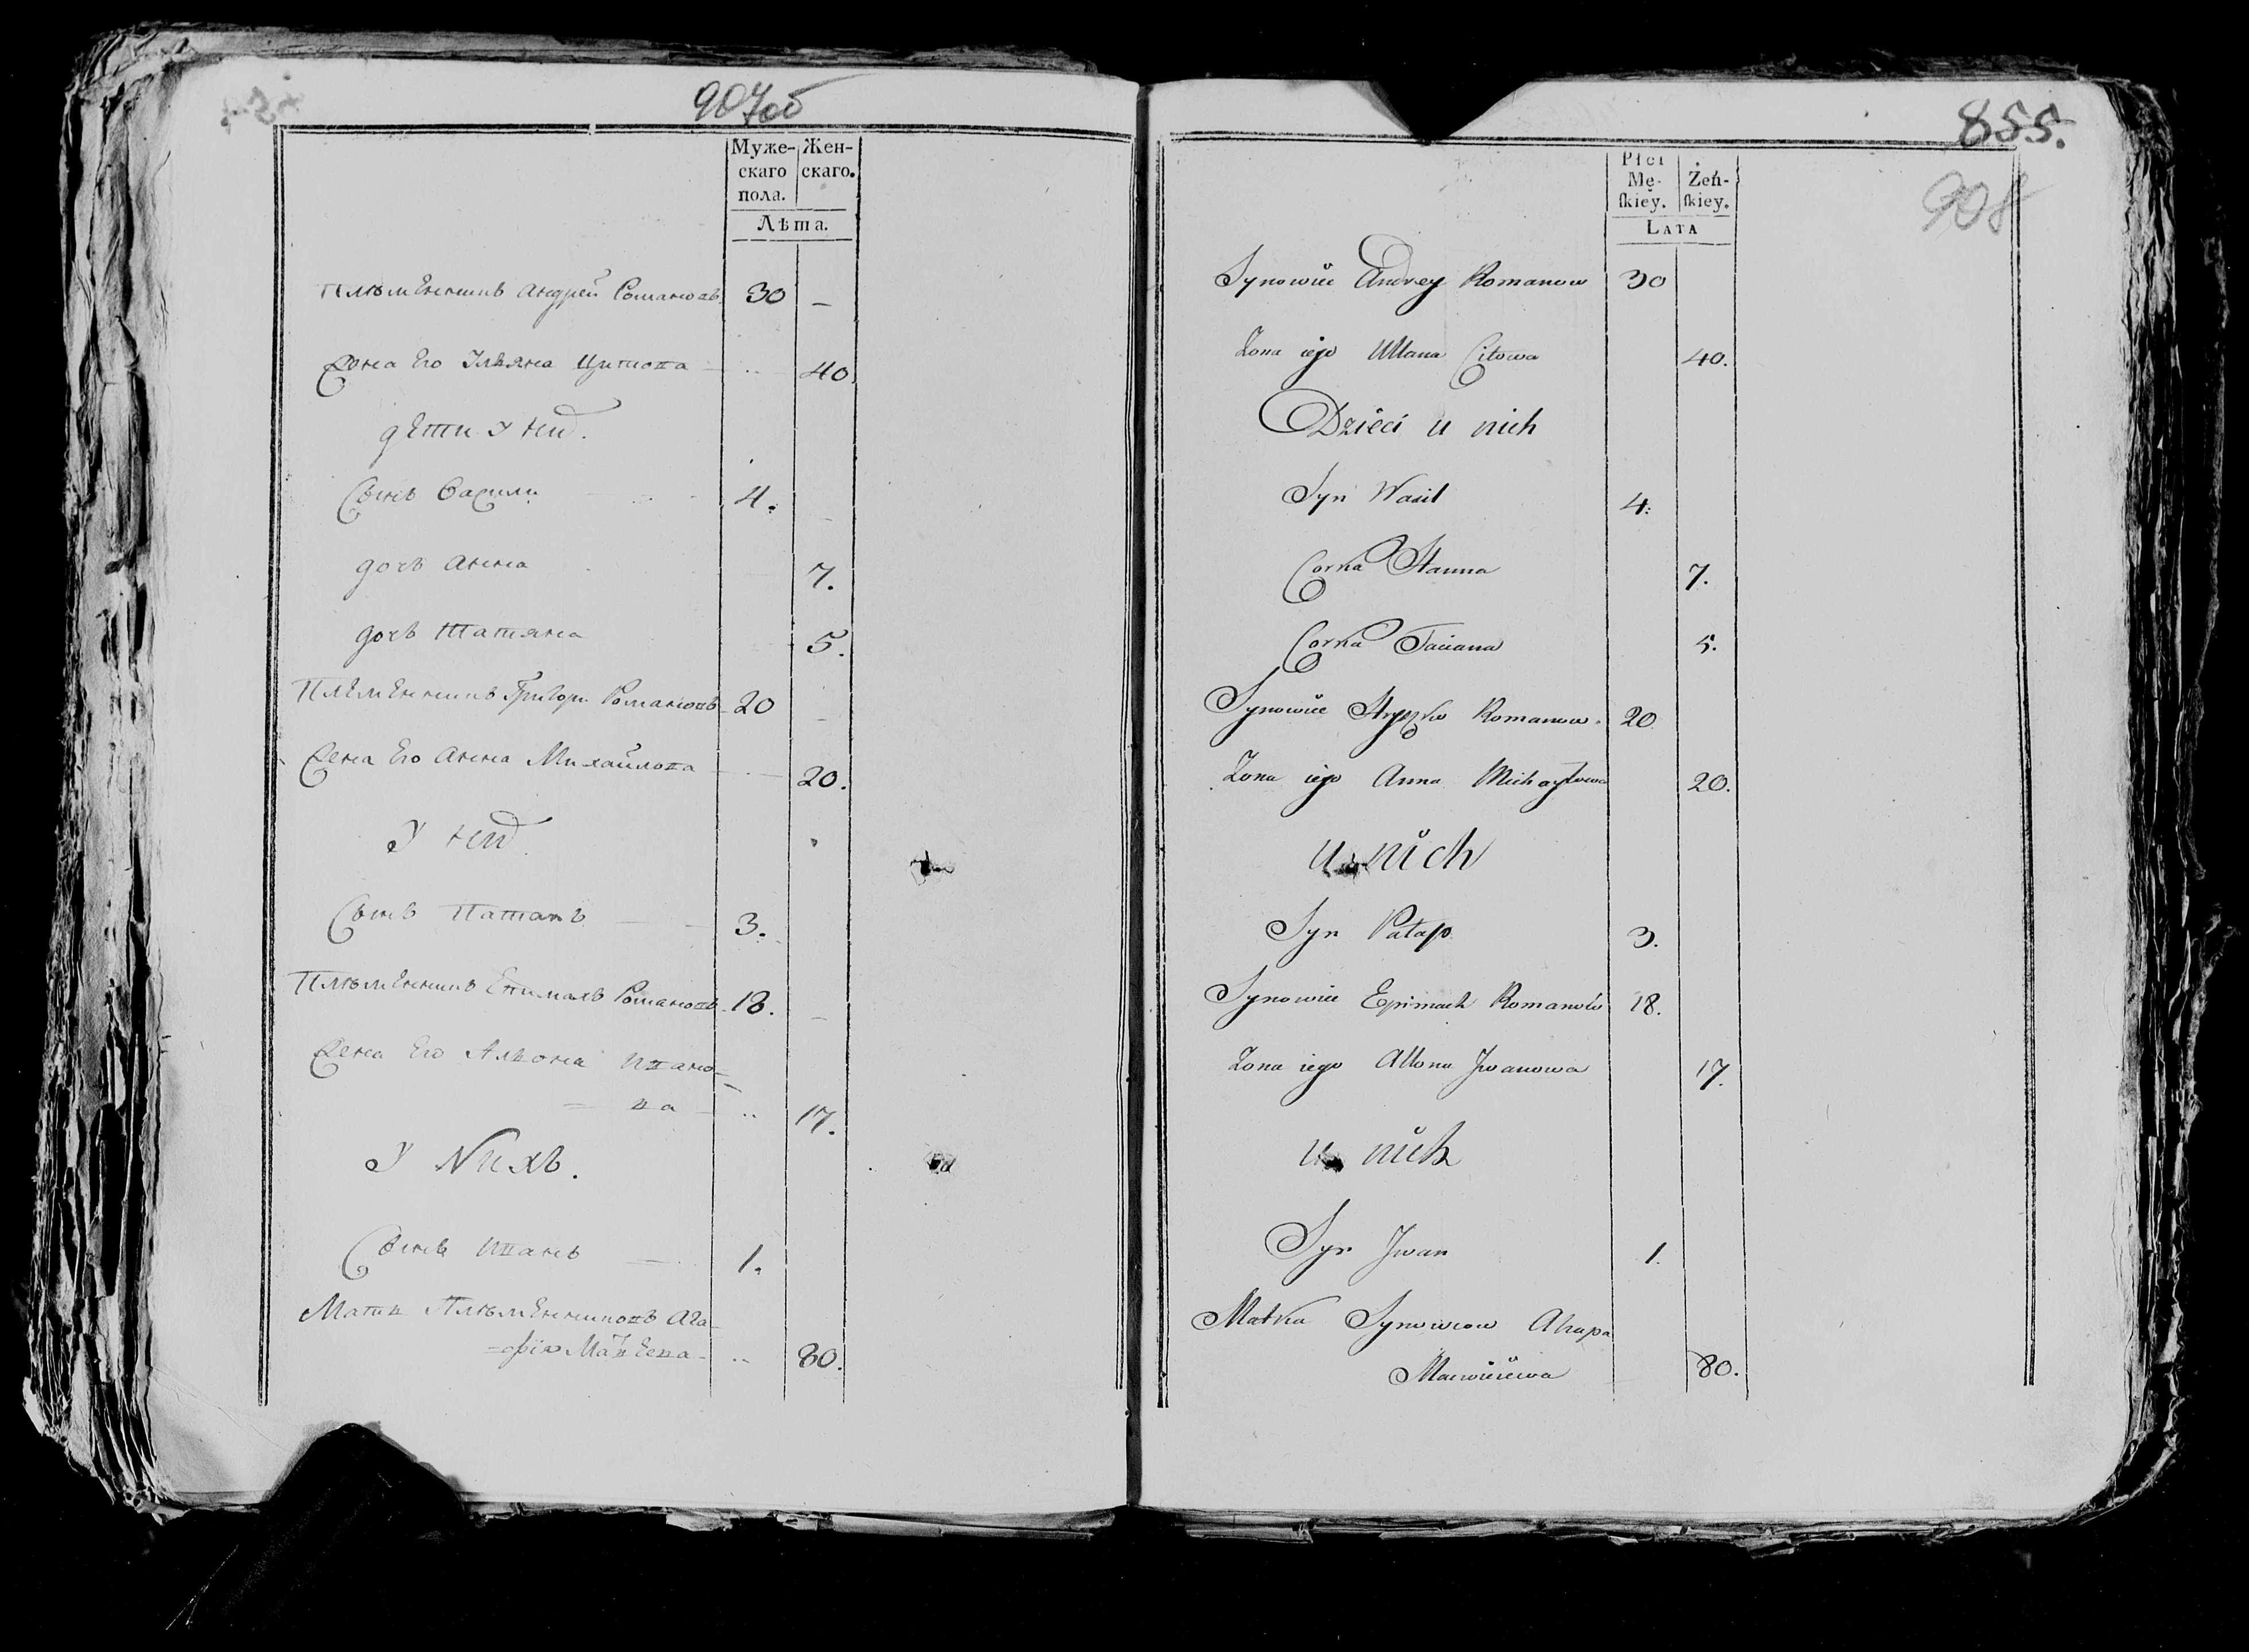 907об
Муже- Жен-
скаго скаго.
пола.
Лѣта.
Племенникъ Андрей Романовъ 30 —
Жена Его Ульяна Цитова 40
дети у них.
Сынъ Васили 4.
дочь Анна 7.
дочь Татяна 5.
Племенникъ Григори Романовъ 20
Жена Его Анна Михайлова 20.
У них
Сынъ Патапъ 3.
Племенникъ Епимахъ Романовъ 18.
Жена Его Алиона Ивано-
ва 17.
У Нихъ.
Сынъ Иванъ 1.
Мати Племенниковъ Ага-
=фiя 80.
855.
908
Płci
Mę- Żeń-
skiey. skiey.
Lata
Synowiec Andrey Romanow 30
Zona iego Ullana Citowa 40.
Dzieci u nich
Syn Wasil 4:
Corka Hanna 7.
Corka Taciana 5.
Synowiec Hryszko Romanow. 20
Zona iego Anna Michayłowa 20.
u nich
Syn Patap 3.
Synowiec Epimach Romanow 18.
Zona iego Allona Jwanowa 17.
u nich
Syn Jwan 1.
Matka Synowcow Ahapa
Macwieiewa 80.